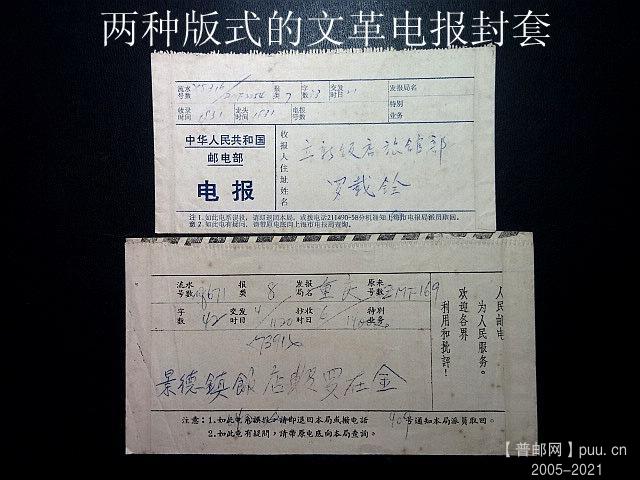 两种版式的文革电报封套
流水号数 报类 7 字数 交发时日 21 发报局名
收录时间 1531 走头时间 1531 电报号数 特别业务
中华人民共和国
邮电部
电报
收报人住址姓名
立新饭店旅馆部
罗载铨
注 1.如此电系误投，请即退回本局，或拨电话211490-58分机通知上海市电报局派员取回。
意 2.如此电有疑问，请带原电底向上海市电报局查询。
流水号数 报类 8 发报局名 重庆 原来号数
字数 42 交发时日 4/1120 抄收时日 6 特别业务
景德镇饭店
在金
人民邮电
为人民服务。
欢迎各界
利用和批评！
注意：1.如此电系误投请即退回本局或拨电话 号通知本局派员取回。
2.如此电有疑问，请带原电底向本局查询。
【普邮网】puu.cn
2005-2021